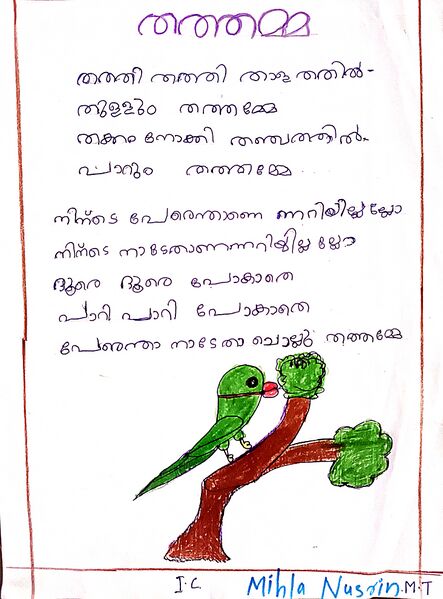 തത്തമ്മ
തത്തി തത്തി താള ത്തതിൽ-
തുള്ളും തത്തമ്മേ
തക്കം നോക്കി തഞ്ചത്തിൽ-
പാറും തത്തമ്മേ
നിന്ടെ പേരെന്താണെ ന്നറിയില്ല ല്ലോ
നിന്ടെ നാടേതാണന്നറിയില്ല ല്ലോ
ദൂരെ ദൂരെ പോകാതെ
പാറി പാറി പോകാതെ
പേരെന്താ നാടേതാ ചൊല്ലു തത്തമ്മേ
I.C
Mihla Nusrin.M.T